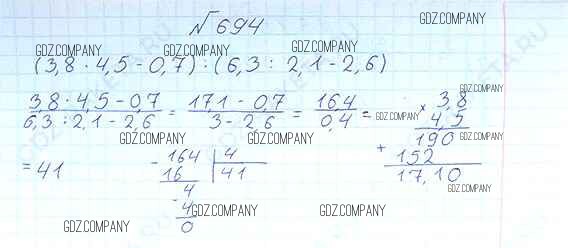 √694
GDZ.COMPANY GDZ.COMPANY GDZ.COMPANY GDZ.COMPANY
(3,8 · 4,5 - 0,7) : (6,3 : 2,1 - 2,6)
3,8 · 4,5 - 0,7 / 6,3 : 2,1 - 2,6 = 17,1 - 0,7 / 3 - 2,6 = 16,4 / 0,4 = GDZ.COMPANY × 3,8 GDZ.COMPANY
4,5
GDZ.COMPANY GDZ.COMPANY 190 GDZ.COMPANY
= 41 - 164 | 4 + 152
16 41 17,10
4 GDZ.COMPANY
- 4
GDZ.COMPANY GDZ.COMPANY GDZ.COMPANY
0